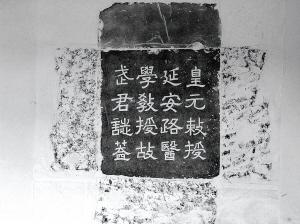 皇元敕授
延安路醫
學教授故
武君誌蓋